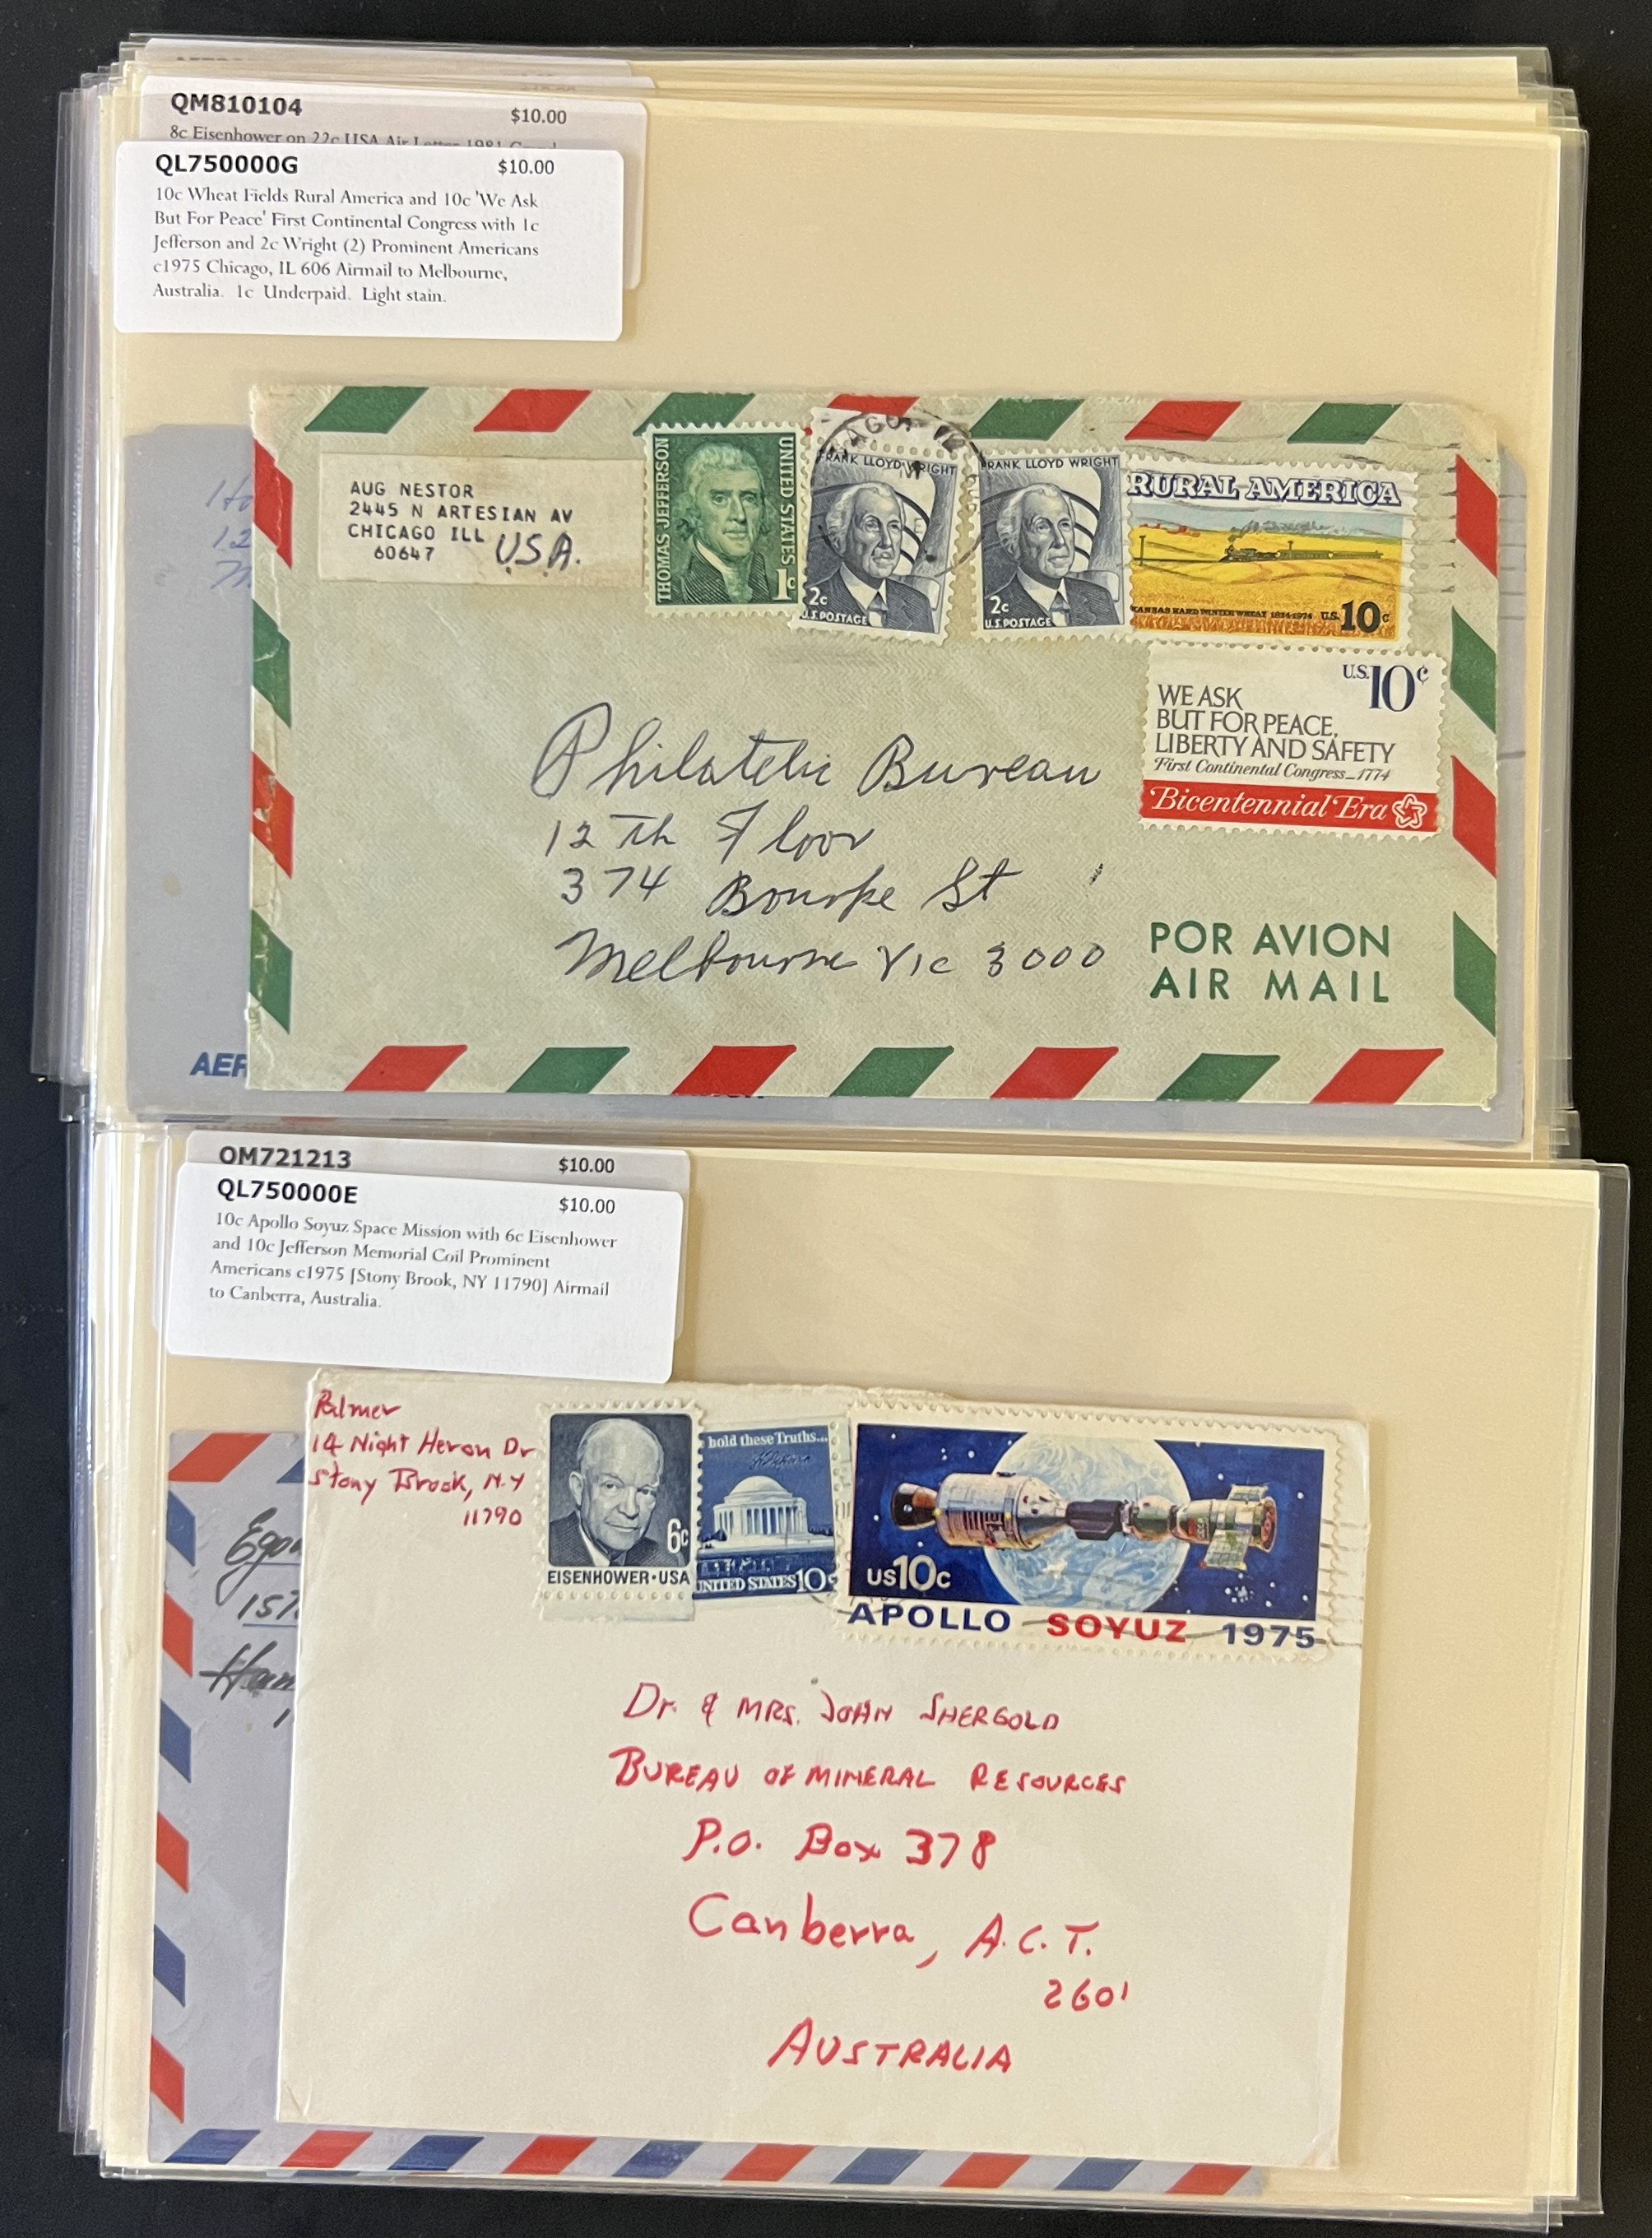 QM810104 $10.00
8c Eisenhower on 22c USA Air Letter 1981
QL750000G $10.00
10c Wheat Fields Rural America and 10c 'We Ask
But For Peace' First Continental Congress with 1c
Jefferson and 2c Wright (2) Prominent Americans
c1975 Chicago, IL 606 Airmail to Melbourne,
Australia. 1c Underpaid. Light stain.
AUG NESTOR
2445 N ARTESIAN AV
CHICAGO ILL
60647 U.S.A.
THOMAS JEFFERSON
UNITED STATES
1c
FRANK LLOYD WRIGHT
2c
U.S. POSTAGE
FRANK LLOYD WRIGHT
2c
U.S. POSTAGE
RURAL AMERICA
KANSAS HARD WINTER WHEAT 1874-1974 U.S. 10c
U.S. 10¢
WE ASK
BUT FOR PEACE,
LIBERTY AND SAFETY
First Continental Congress_1774
Bicentennial Era
Philatelic Bureau
12Th Floor
374 Bourke St
Melbourne Vic 3000
POR AVION
AIR MAIL
12
AER
QM721213 $10.00
QL750000E $10.00
10c Apollo Soyuz Space Mission with 6c Eisenhower
and 10c Jefferson Memorial Coil Prominent
Americans c1975 [Stony Brook, NY 11790] Airmail
to Canberra, Australia.
Palmer
14 Night Heron Dr
Stony Brook, N.Y
11790
6c
EISENHOWER·USA
hold these Truths...
UNITED STATES 10c
US10c
APOLLO SOYUZ 1975
Dr. & MRS. JOHN SHERGOLD
BUREAU OF MINERAL RESOURCES
P.O. Box 378
Canberra, A.C.T.
2601
AUSTRALIA